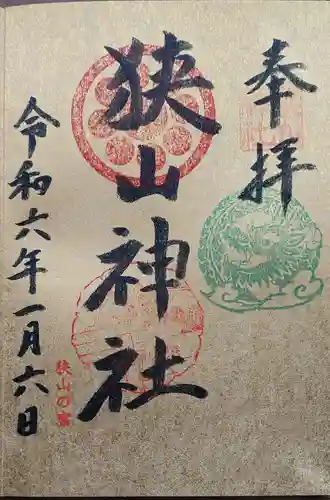 奉拝
狭山神社
令和六年一月六日
狭山の宮